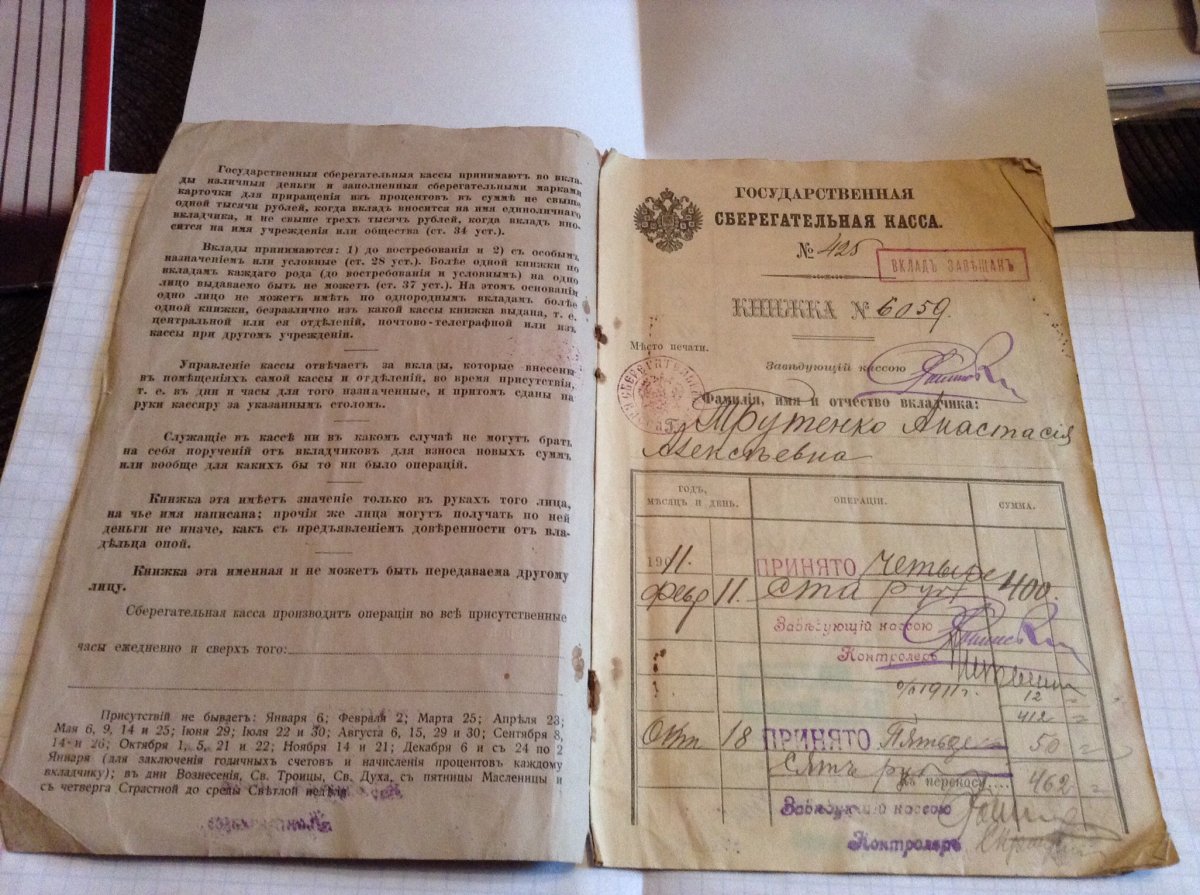 Государственныя сберегательныя кассы принимаютъ во вкла-
ды наличныя деньги и заполненныя сберегательными марками
карточки для приращенія изъ процентовъ въ суммѣ не свыше
одной тысячи рублей, когда вкладъ вносится на имя единоличнаго
вкладчика, и не свыше трехъ тысячъ рублей, когда вкладъ вно-
сится на имя учрежденія или общества (ст. 34 уст.).
Вклады принимаются: 1) до востребованія и 2) съ особымъ
назначеніемъ или условные (ст. 28 уст.). Болѣе одной книжки по
вкладамъ каждаго рода (до востребованія и условнымъ) на одно
лицо выдаваемо быть не можетъ (ст. 37 уст.). На этомъ основаніи
одно лицо не можетъ имѣть по однороднымъ вкладамъ болѣе
одной книжки, безразлично изъ какой кассы книжка выдана, т. е.
центральной или ея отдѣленій, почтово-телеграфной или изъ
кассы при другомъ учрежденіи.
Управленіе кассы отвѣчаетъ за вклады, которые внесены
въ помѣщеніяхъ самой кассы и отдѣленій, во время присутствія,
т. е. въ дни и часы для того назначенные, и притомъ сданы на
руки кассиру за указаннымъ столомъ.
Служащіе въ кассѣ ни въ какомъ случаѣ не могутъ брать
на себя порученій отъ вкладчиковъ для взноса новыхъ суммъ
или вообще для какихъ бы то ни было операцій.
Книжка эта имѣетъ значеніе только въ рукахъ того лица,
на чье имя написана; прочія же лица могутъ получать по ней
деньги не иначе, какъ съ предъявленіемъ довѣренности отъ вла-
дѣльца оной.
Книжка эта именная и не можетъ быть передаваема другому
лицу.
Сберегательная касса производитъ операціи во всѣ присутственные
часы ежедневно и сверхъ того:
Присутствій не бываетъ: Января 6; Февраля 2; Марта 25; Апрѣля 23;
Мая 6, 9, 14 и 25; Іюня 29; Іюля 22 и 30; Августа 6, 15, 29 и 30; Сентября 8,
14 и 26; Октября 1, 5, 21 и 22; Ноября 14 и 21; Декабря 6 и съ 24 по 2
Января (для заключенія годичныхъ счетовъ и начисленія процентовъ каждому
вкладчику); въ дни Вознесенія, Св. Троицы, Св. Духа, съ пятницы Масленицы и
съ четверга Страстной до среды Свѣтлой недѣли.
ГОСУДАРСТВЕННАЯ
СБЕРЕГАТЕЛЬНАЯ КАССА.
№ 425
ВКЛАДЪ ЗАВѢЩАНЪ
КНИЖКА № 6059.
Мѣсто печати.
Завѣдующій кассою
Фамилія, имя и отчество вкладчика:
Трутенко Анастасія
Алексѣевна
ГОДЪ, МѢСЯЦЪ И ДЕНЬ. ОПЕРАЦІИ. СУММА.
1911. ПРИНЯТО Четыре
февр 11. ста руб 400.
Завѣдующій кассою
Контролеръ
% 1911 г. 12
412
Окт 18 ПРИНЯТО Пятьде- 50
сятъ руб
Къ переносу.... 462
Завѣдующій кассою
Контролеръ